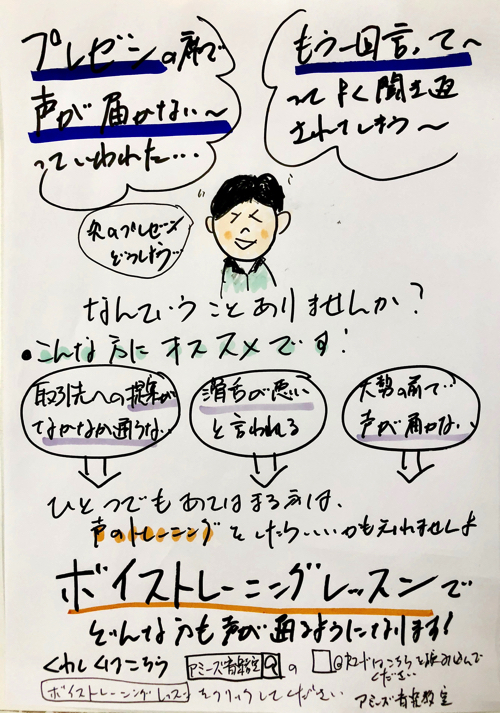 プレゼンの席で
声が届かない〜
っていわれた…
もう一回言って〜
ってよく聞き返
されてしまう〜
次のプレゼン
どうしよう…
なんていうことありませんか？
・こんな方にオススメです！
取引先への提案が
なかなか通らない
滑舌が悪い
と言われる
大勢の前で
声が届かない
ひとつでもあてはまる方は、
声のトレーニングをしたらいいかもしれませんよ
ボイストレーニングレッスンで
どんな方も声が通るようになります！
くわしくはこちら アミーズ音楽教室 の
ボイストレーニングレッスン をクリックしてください
アミーズ音楽教室